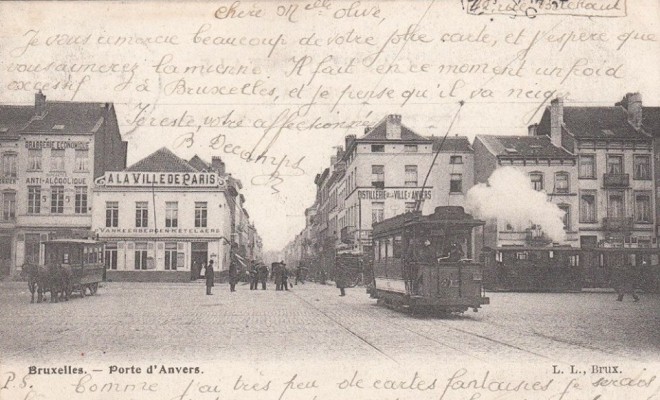 Chère Mlle Olive,
Je vous remercie beaucoup de votre jolie carte, et j'espère que
vous aimerez la mienne. Il fait en ce moment un froid
excessif à Bruxelles, et je pense qu'il va neiger
Je reste, votre affectionnée
B. Decamps
BRASSERIE ECONOMIQUE
ANTI-ALCOOLIQUE
A LA VILLE DE PARIS
VANKEERBERGEN
DISTILLERIE DE LA VILLE D'ANVERS
Bruxelles. — Porte d'Anvers.
L. L., Brux.
P.S. Comme j'ai très peu de cartes fantaisies je serais